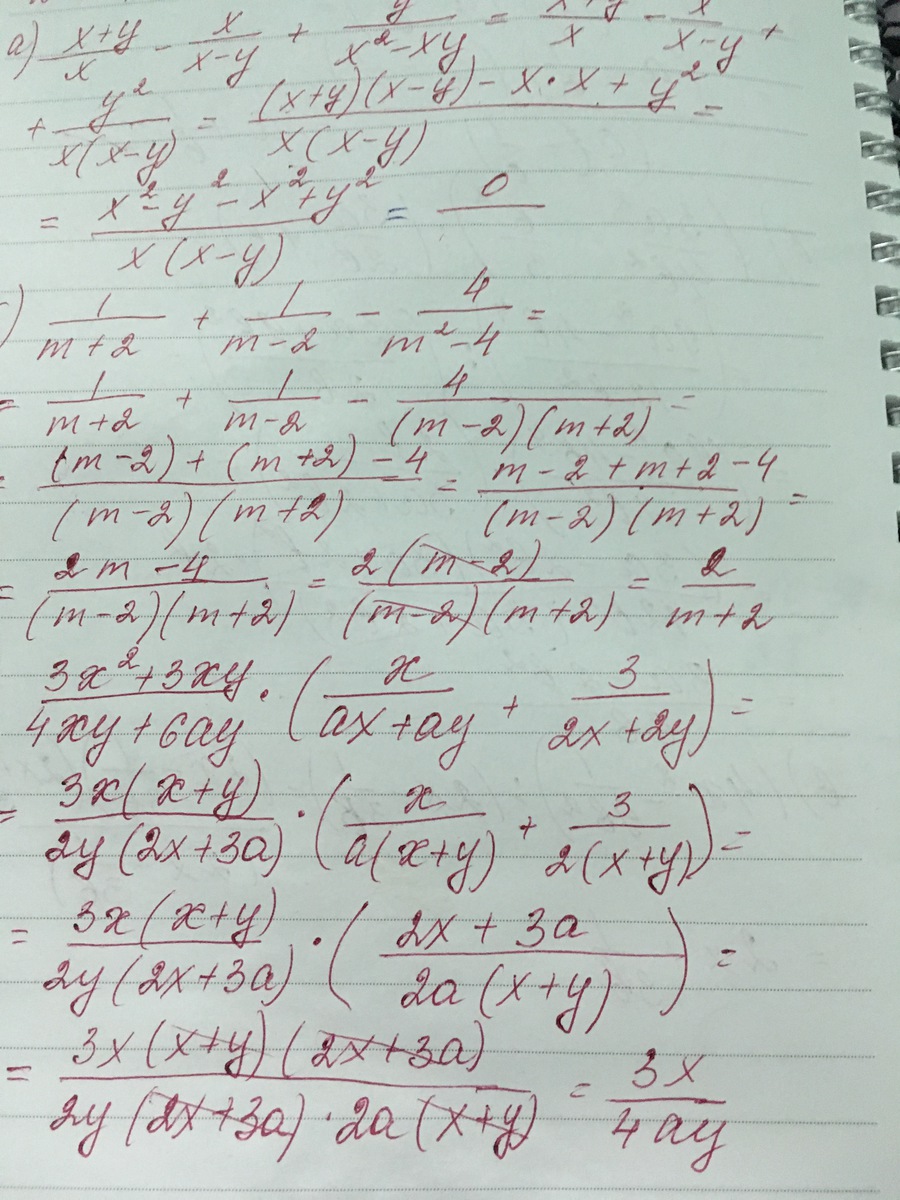 a) \frac{x+y}{x} - \frac{x}{x-y} + \frac{y}{x^2-xy} = \frac{x+y}{x} - \frac{x}{x-y} +
+ \frac{y^2}{x(x-y)} = \frac{(x+y)(x-y) - x·x + y^2}{x(x-y)} =
= \frac{x^2-y^2-x^2+y^2}{x(x-y)} = \frac{0}{}
) \frac{1}{m+2} + \frac{1}{m-2} - \frac{4}{m^2-4} =
= \frac{1}{m+2} + \frac{1}{m-2} - \frac{4}{(m-2)(m+2)} =
= \frac{(m-2)+(m+2)-4}{(m-2)(m+2)} = \frac{m-2+m+2-4}{(m-2)(m+2)} =
= \frac{2m-4}{(m-2)(m+2)} = \frac{2(m-2)}{(m-2)(m+2)} = \frac{2}{m+2}
\frac{3x^2+3xy}{4xy+6ay} · (\frac{x}{ax+ay} + \frac{3}{2x+2y}) =
= \frac{3x(x+y)}{2y(2x+3a)} · (\frac{x}{a(x+y)} + \frac{3}{2(x+y)}) =
= \frac{3x(x+y)}{2y(2x+3a)} · (\frac{2x+3a}{2a(x+y)}) =
= \frac{3x(x+y)(2x+3a)}{2y(2x+3a)·2a(x+y)} = \frac{3x}{4ay}